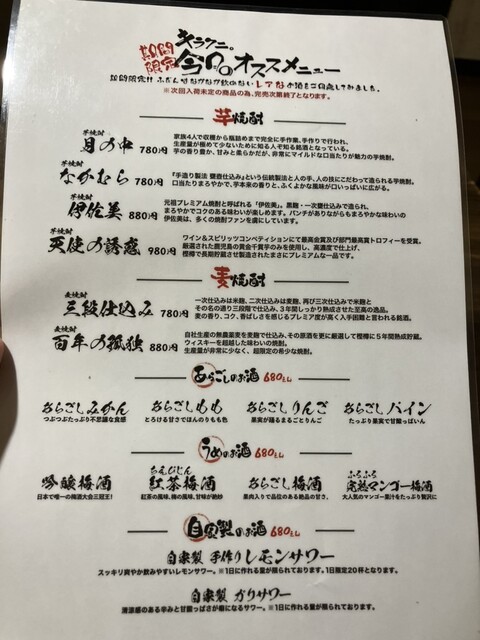 炙ラクニ。
期間限定
今日のオススメニュー
期間限定!! ふだんはなかなか飲めないレアなお酒をご用意してみました。
※次回入荷未定の商品の為、完売次第終了となります。
芋焼酎
芋焼酎
月の中 780円
家族4人で収穫から瓶詰めまで完全に手作業、手作りで行われ、
生産量が極めて少ないために知る人ぞ知る銘酒となっている。
芋の香り豊か、甘みと柔らかだが、非常にマイルドな口当たりが魅力の芋焼酎。
芋焼酎
なかむら 780円
「手造り製法 甕壺仕込み」という伝統製法と人の手、人の技にこだわって造られる芋焼酎。
口当たりまろやかで、芋本来の香りと、ふくよかな風味が口いっぱいに広がる。
芋焼酎
伊佐美 880円
元祖プレミアム焼酎と呼ばれる「伊佐美」。黒麹・一次甕仕込みで造られ、
まろやかでコクのある味わいが楽しめます。パンチがありながらもまろやかな味わいの
伊佐美は、多くの焼酎ファンを虜にしています。
芋焼酎
天使の誘惑 980円
ワイン&スピリッツコンペティションにて最高金賞及び部門最高賞トロフィーを受賞。
厳選された鹿児島の黄金千貫芋のみを使用し、高濃度で仕上げ、
樫樽で長期貯蔵させ製造されたまさにプレミアムな一品です。
麦焼酎
麦焼酎
三段仕込み 780円
一次仕込みは米麹、二次仕込みは麦麹、再び三次仕込みで米麹と
その名の通り三段階で仕込み、3年間しっかり熟成させた至高の逸品。
麦の香り、コク、香ばしさを感じるプレミア度が高く入手困難と言われる銘酒。
麦焼酎
百年の孤独 880円
自社生産の無農薬麦を麦麹で仕込み、その原酒を更に厳選して樫樽に5年間熟成貯蔵。
ウィスキーを超越した味わいの焼酎。
生産量が非常に少なく、超限定の希少な焼酎。
あらごしのお酒 680えん
あらごしみかん あらごしもも あらごしりんご あらごしパイン
つぶつぶたっぷり不思議な食感 とろける甘さでほんのりもも色 果実が踊るまるごとりんご たっぷり果実で甘酸っぱいん
うめのお酒 680えん
吟醸梅酒 紅茶梅酒 あらごし梅酒 完熟マンゴー梅酒
日本で唯一の梅酒大会三冠王! 紅茶の風味、梅の風味、甘味が絶妙 果肉入りで品位のある絶品の甘さ。 大人気のマンゴー果汁をたっぷり贅沢に
自家製のお酒 680えん
自家製 手作りレモンサワー
スッキリ爽やか飲みやすいレモンサワー。※1日に作れる量が限られております。1日限定20杯となります。
自家製 ガリサワー
清涼感のある辛みと甘酸っぱさが癖になるサワー。※1日に作れる量が限られております。